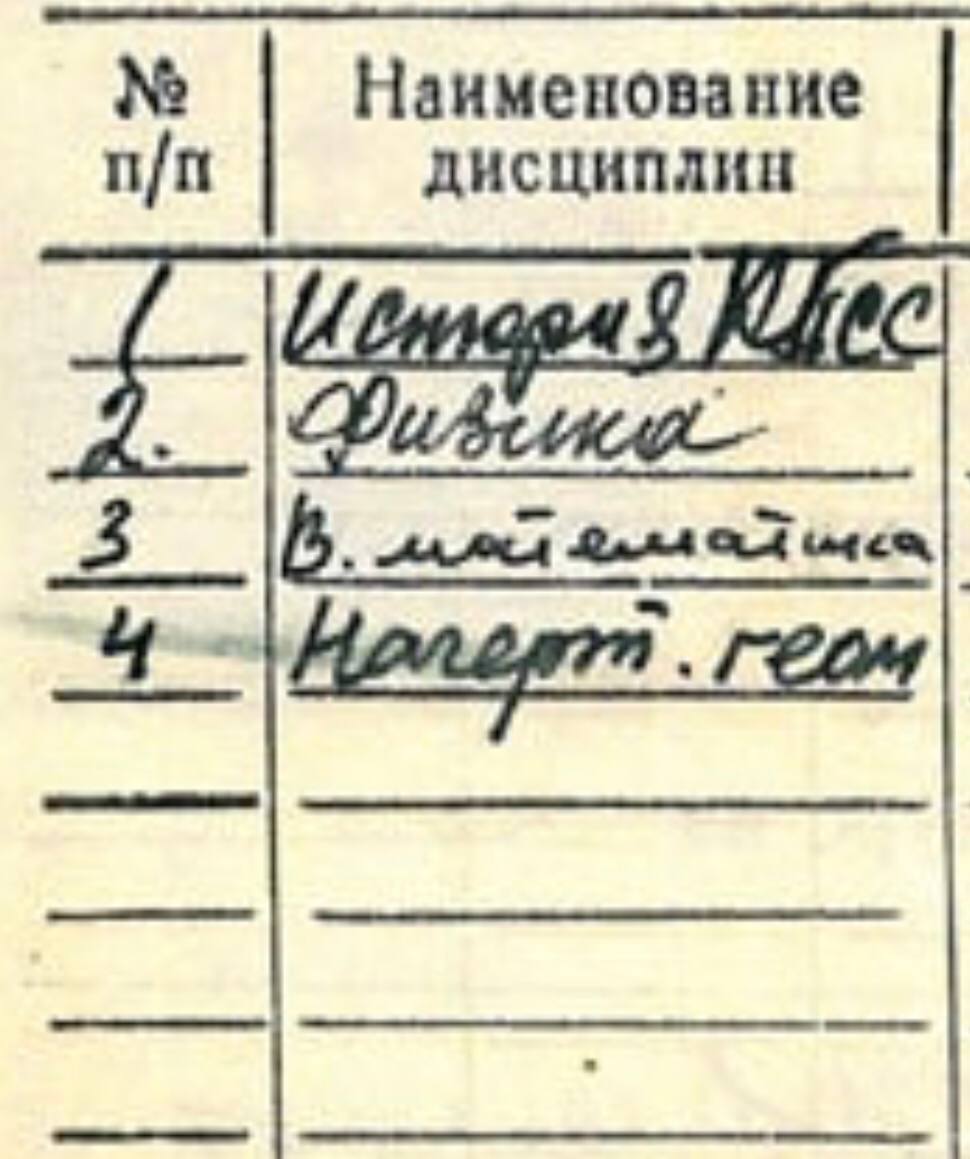 № п/п Наименование дисциплин
1 История КПСС
2. Физика
3 В. математика
4 Начерт. геом